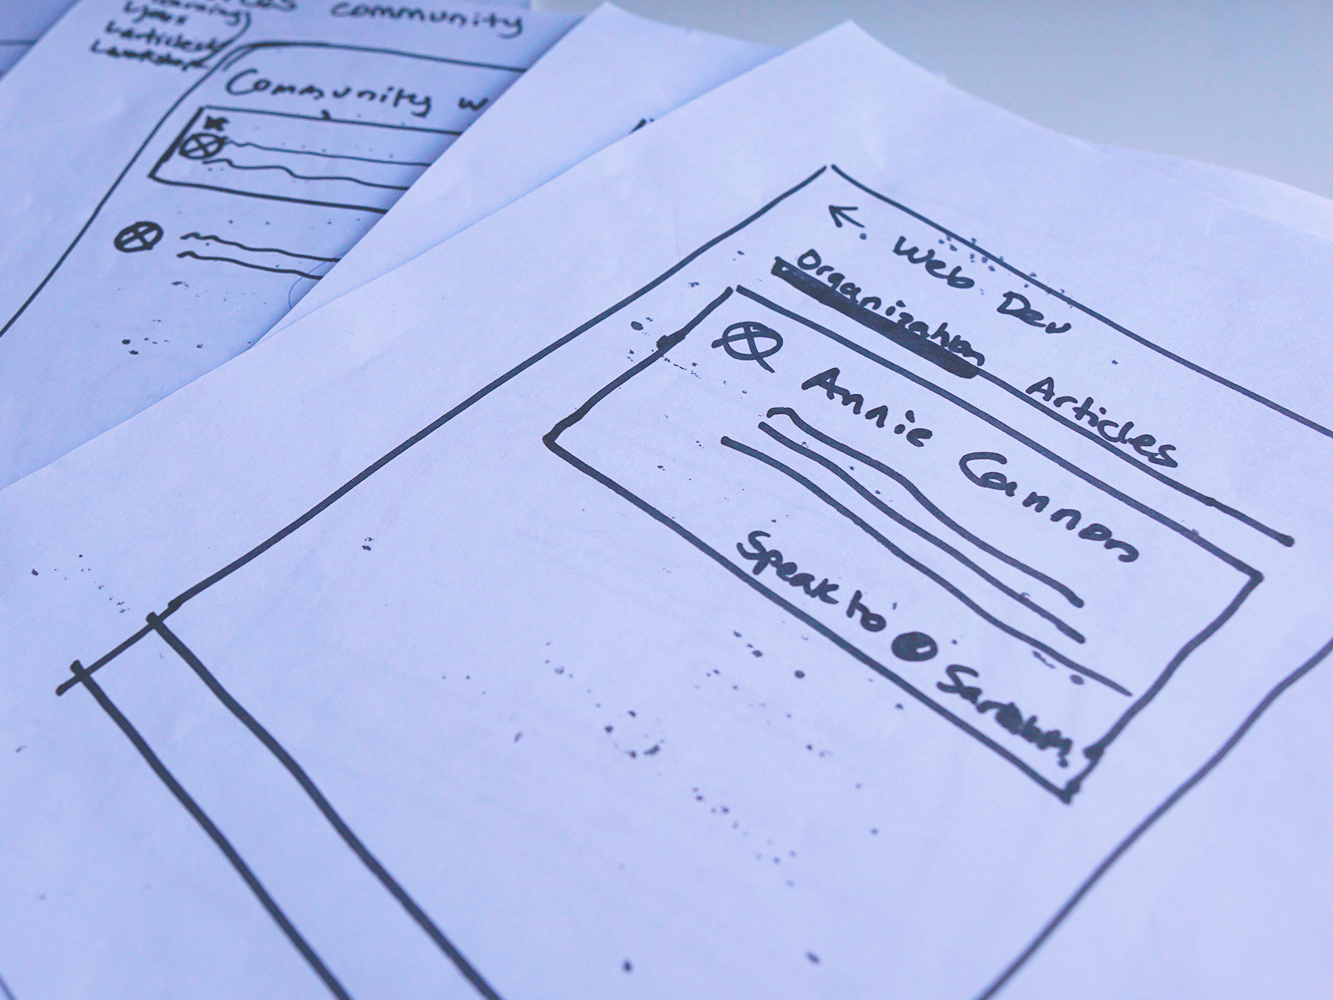 community
Jobs
Larticles
Lworkshop
Community w
← Web Dev
Organization Articles
Annie Cannon
Speak to